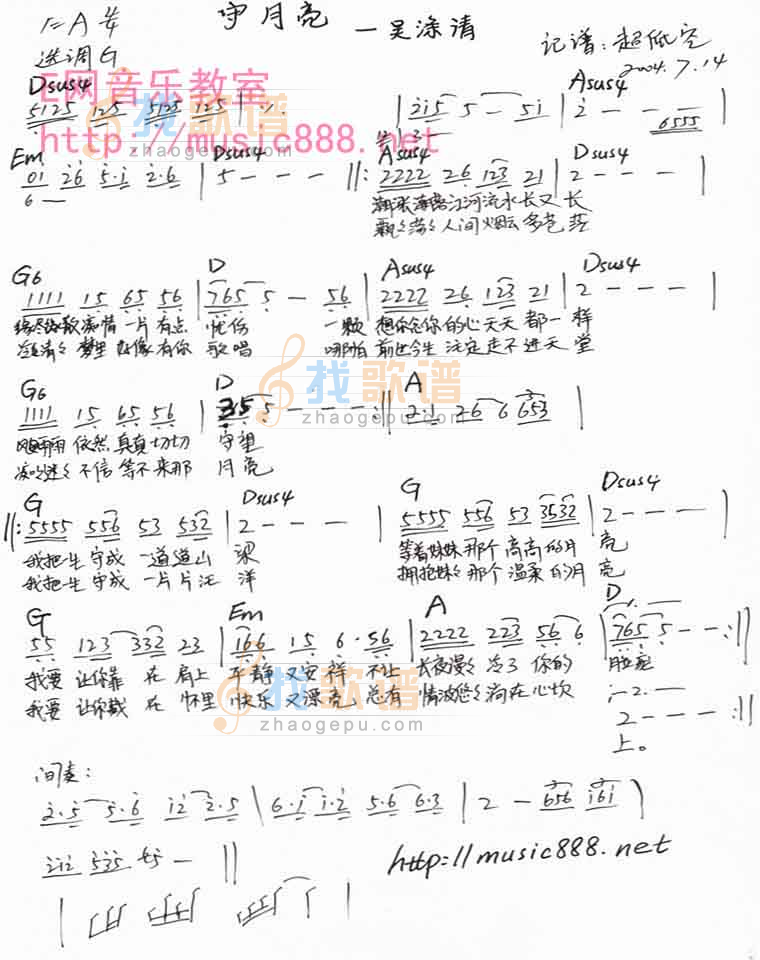 1=A 4/4 守月亮 —吴涤清
选调G 记谱:超低空
2004.7.14
E网音乐教室
http://music888.net
找歌谱
zhaogepu.com
Dsus4 Asus4
5125 125 5125 125 | ٪ | 2i5 5 — 5i | 2 - - 6555 |
Em Dsus4 Asus4 Dsus4
01 26 5·i 2·6 | 5 - - - ||: 2222 26 123 21 | 2 - - - |
6 —
潮涨潮落江河流水长又长
飘飘荡荡人间烟云多苍茫
G6 D Asus4 Dsus4
1111 15 65 56 | 765 5 — 56 | 2222 26 123 21 | 2 - - - |
缘尽缘散痴情一片有点忧伤 一颗想你念你的心天天都一样
冷冷清清梦里好像有你歌唱 哪怕前世今生注定走不进天堂
G6 D A
1111 15 65 56 | 35 5 - - - :|| 2·1 26 6 653 |
风风雨雨依然真真切切守望
不信等不来那月亮
G Dsus4 G Dsus4
||: 5555 556 53 532 | 2 - - - | 5555 556 53 3532 | 2 - - - |
我把一生守成一道道山梁 等着妹妹那个高高的月亮
我把一生守成一片片汪洋 拥抱妹妹那个温柔的月亮
G Em A D
55 123 332 23 | 166 15 6·56 | 2222 223 56 6 | 765 5 - - :||
我要让你靠在肩上平静又安祥 不让长夜漫漫冷了你的脸庞
我要让你戴在怀里快乐又漂亮 总有情波悠悠淌在心坎
1-2.
2 - - - :||
上。
找歌谱
zhaogepu.com
间奏:
2·5 5·6 i2 2·5 | 6·i i·2 5·6 6·3 | 2 — 656 i6i |
2i2 535 — ||
http://music888.net